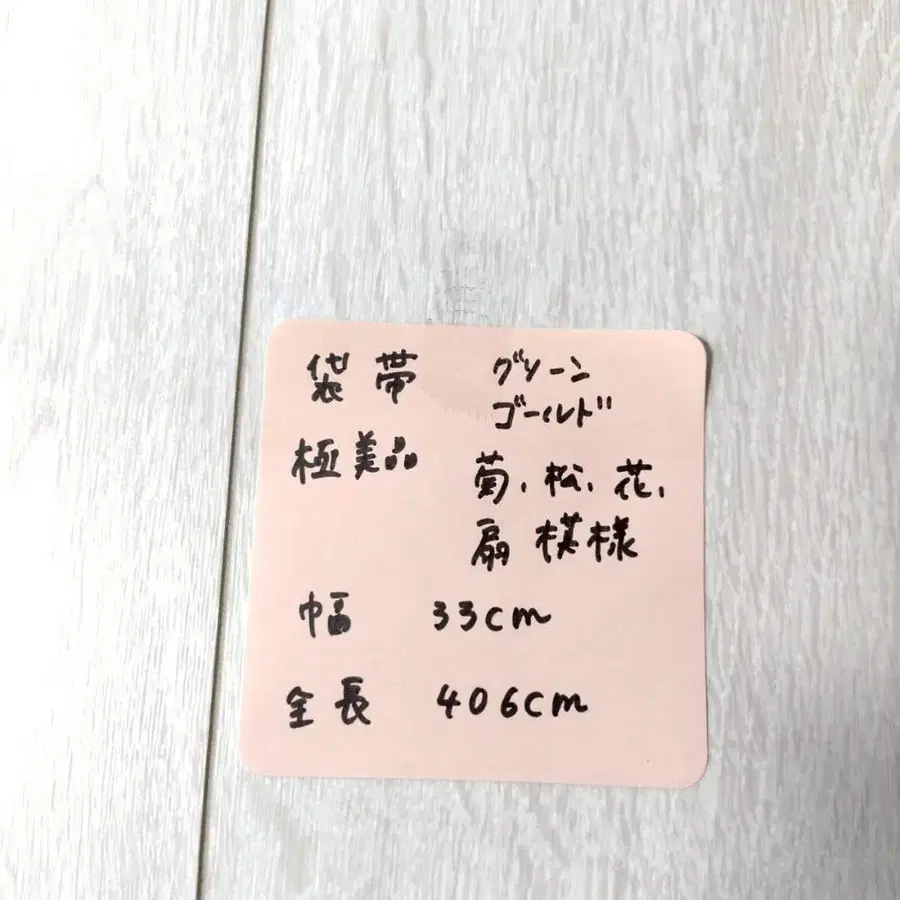 袋帯 グリーン
ゴールド
極美品
菊、松、花、
扇模様
幅 33cm
全長 406cm